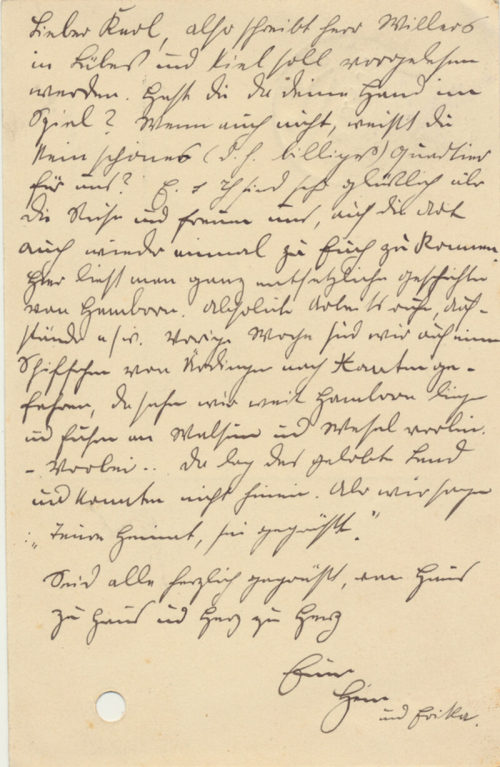 Lieber Karl, also schreibt Herr Willers
in Lübeck und Kiel soll vorgelesen
werden. Hast du da deine Hand im
Spiel? Wenn auch nicht, weißt du
kein schönes (d. h. billiges) Quartier
für uns? E. + Ich sind sehr glücklich über
die Reise und freuen uns, auf die Art
auch wieder einmal zu Euch zu kommen.
Hier liest man ganz entsetzliche Geschichten
von Hamborn. Absolute Arbeitsruhe, Auf-
stände u/w. Vorige Woche sind wir auf einem
Schiffchen von Ürdingen nach Xanten ge-
fahren, da sahen wir weit Hamborn liegen
und fuhren an Walsum und Wesel vorbei.
– Vorbei .. Da lag das gelobte Land
und konnten nicht hinein. Aber wir sagten
"Teure Heimat, sei gegrüßt."
Seid alle herzlich gegrüßt, von Haus
zu Haus und Herz zu Herz
Euer
Hein
und Erika.